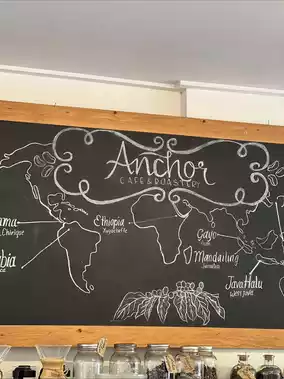 Anchor
CAFE & ROASTERY
ama
Chirique
bia
ca
Ethiopia
Gayo
Mandailing
Java Halu
West Java